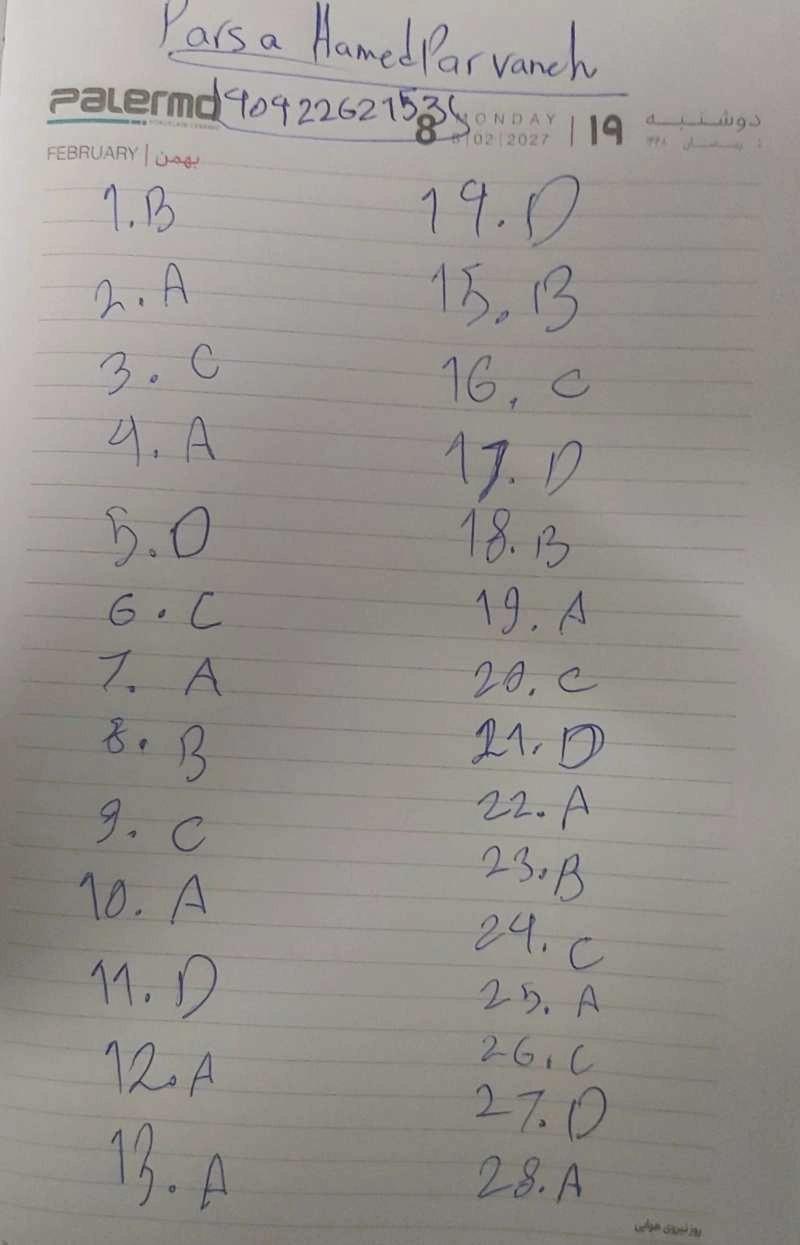 Parsa HamedParvaneh
palermo
40422621536
8 MONDAY
8|02|2027
19
دوشنبه
FEBRUARY | بهمن
1.B
2. A
3. C
4. A
5. D
6. C
7. A
8. B
9. C
10. A
11. D
12. A
13. A
14. D
15. B
16. C
17. D
18. B
19. A
20. C
21. D
22. A
23. B
24. C
25. A
26. C
27. D
28. A
روز نیروی هوایی